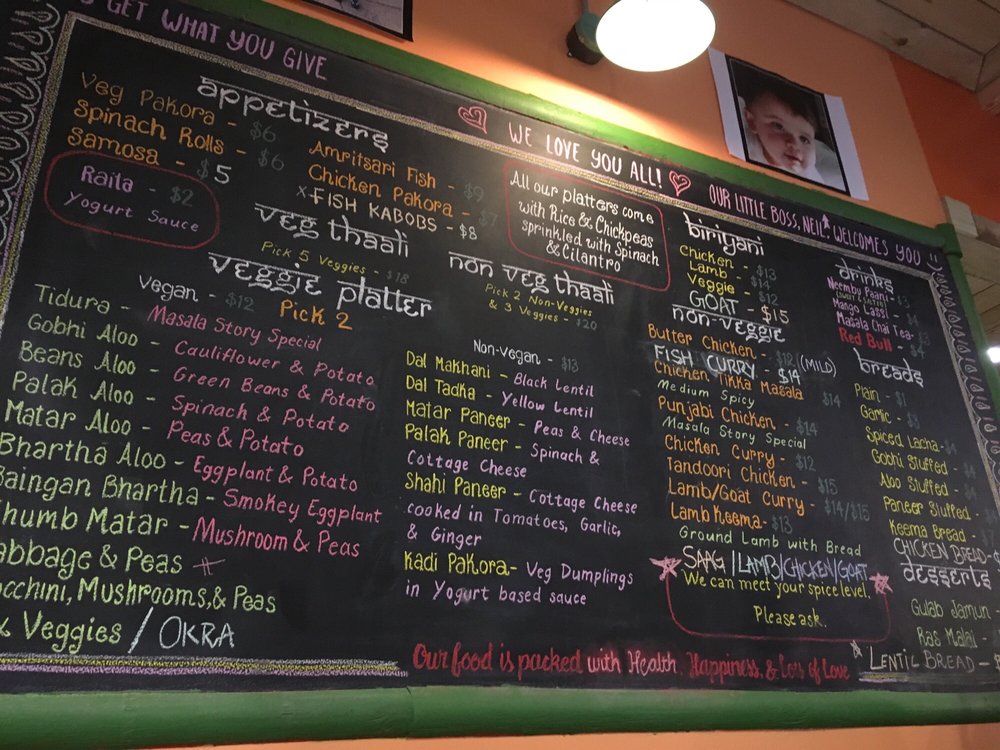 GET WHAT YOU GIVE
WE LOVE YOU ALL!
OUR LITTLE BOSS, NEIL WELCOMES YOU
Appetizers
Veg Pakora - $6
Spinach Rolls - $6
Samosa - $5
Raita - $2
Yogurt Sauce
Amritsari Fish - $9
Chicken Pakora - $7
x FISH KABOBS - $8
Veg Thaali
Pick 5 Veggies - $18
Veggie Platter
Vegan - $12
Pick 2
Tidura - Masala Story Special
Gobhi Aloo - Cauliflower & Potato
Beans Aloo - Green Beans & Potato
Palak Aloo - Spinach & Potato
Matar Aloo - Peas & Potato
Bhartha Aloo - Eggplant & Potato
Baingan Bhartha - Smokey Eggplant
Matar - Mushroom & Peas
& Peas
Mushrooms, & Peas
Veggies / OKRA
All our platters come
with Rice & Chickpeas
sprinkled with Spinach
& Cilantro
Non Veg Thaali
Pick 2 Non-Veggies
& 3 Veggies - $20
Non-Vegan - $13
Dal Makhani - Black Lentil
Dal Tadka - Yellow Lentil
Matar Paneer - Peas & Cheese
Palak Paneer - Spinach &
Cottage Cheese
Shahi Paneer - Cottage Cheese
cooked in Tomatoes, Garlic,
& Ginger
Kadi Pakora - Veg Dumplings
in Yogurt based sauce
Our food is packed with Health, Happiness, & Lots of Love
Biriyani
Chicken - $13
Lamb - $14
Veggie - $12
GOAT - $15
Non-Veggie
Butter Chicken - $12 (MILD)
FISH CURRY - $14
Chicken Tikka Masala $14
Medium Spicy
Punjabi Chicken - $14
Masala Story Special
Chicken Curry - $12
Tandoori Chicken - $15
Lamb/Goat Curry - $14/$15
Lamb Keema - $13
Ground Lamb with Bread
SAAG / LAMB/CHICKEN/GOAT
We can meet your spice level.
Please ask.
Drinks
Neembu Paani -
Mango Lassi -
Masala Chai Tea -
Red Bull - $4
Breads
Plain - $1
Garlic - $3
Spiced Lacha - $4
Gobhi Stuffed -
Aloo Stuffed -
Paneer Stuffed -
Keema Bread -
CHICKEN BREAD -
Desserts
Gulab Jamun
Ras Malai -
LENTIL BREAD -